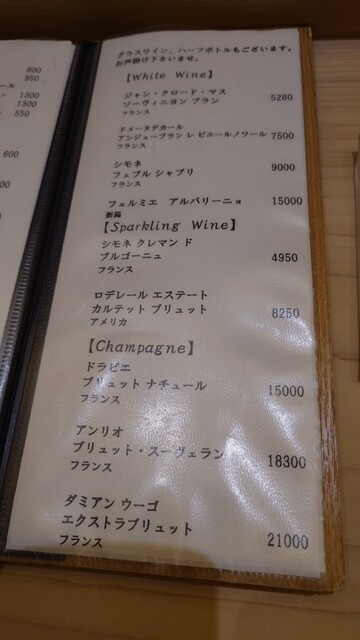 800
950
ール
ン 1300
1300
ン 550
600
グラスワイン、ハーフボトルもございます。
お声掛け下さいませ。
【White Wine】
ジャン・クロード・マス
ソーヴィニヨン ブラン 5280
フランス
ドメーヌデカール
アンジューブラン レ ピエールノワール 7500
フランス
シモネ
フェブル シャブリ 9000
フランス
フェルミエ アルバリーニョ 15000
新潟
【Sparkling Wine】
シモネ クレマン ド
ブルゴーニュ 4950
フランス
ロデレール エステート
カルテット ブリュット 8250
アメリカ
【Champagne】
ドラピエ
ブリュット ナチュール 15000
フランス
アンリオ
ブリュット・スーヴェラン 18300
フランス
ダミアン ウーゴ
エクストラブリュット 21000
フランス